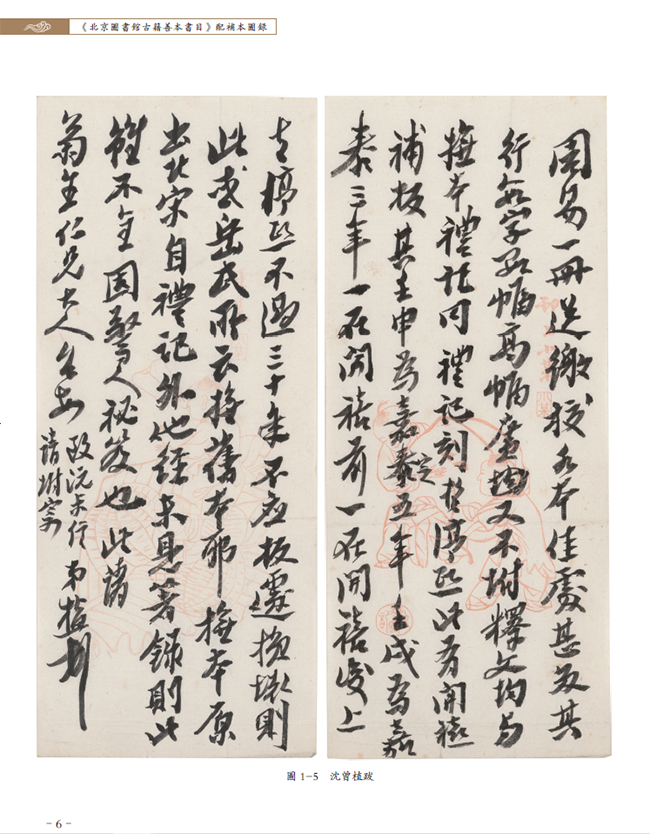 《北京圖書館古籍善本書目》配補本圖錄
周易一冊送繳較各本佳處甚多其
行款字數幅高幅廣均又不坿釋文均與
撫本禮記同禮記刻於淳熙此有開禧
補板其壬申為嘉泰定五年壬戌為嘉
泰三年一在開禧前一在開禧後上
去淳熙不過三十年不應板遽損壞則
此或岳氏所云撫舊本耶撫本原
出北宋自禮記外他經未見著錄則此
雖不全固驚人秘笈也此請
仁兄大人台安
弟植頓
圖1-5 沈曾植跋
- 6 -